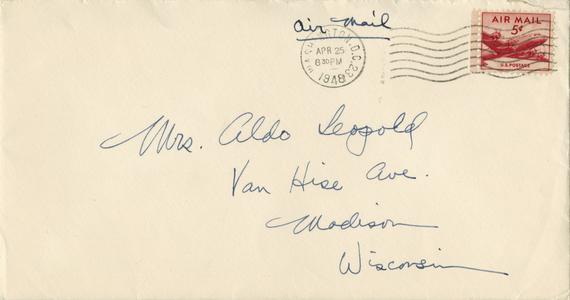 air mail
AIR MAIL
5¢
U.S. POSTAGE
WASHINGTON, D.C. 23
APR 25
8 30 PM
1948
Mrs. Aldo Leopold
Van Hise Ave.
Madison
Wisconsin